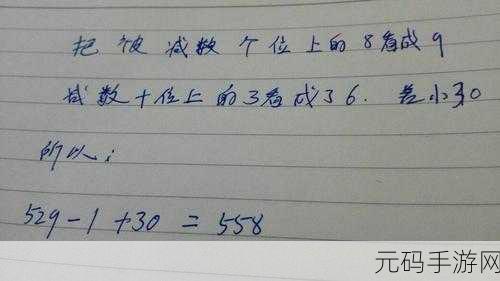 把被减数个位上的8看成9
减数十位上的3看成了6. 差小了30
所以:
529-1+30=558
元码手游网